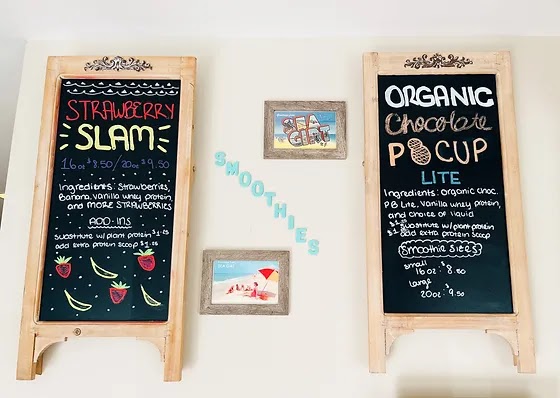 STRAWBERRY
SLAM
16oz $8.50/20oz $9.50
Ingredients: Strawberries,
Banana, Vanilla whey protein,
and MORE STRAWBERRIES
ADD-INS
Substitute w/ plant protein $1.25
add extra protein scoop
SMOOTHIES
SEA
GIRT
ORGANIC
Chocolate
PB CUP
LITE
Ingredients: organic choc.
PB Lite, Vanilla whey protein,
and choice of liquid
Substitute w/ plant protein
add extra protein scoop
Smoothie Sizes
Small
16oz $8.50
Large
20oz $9.50